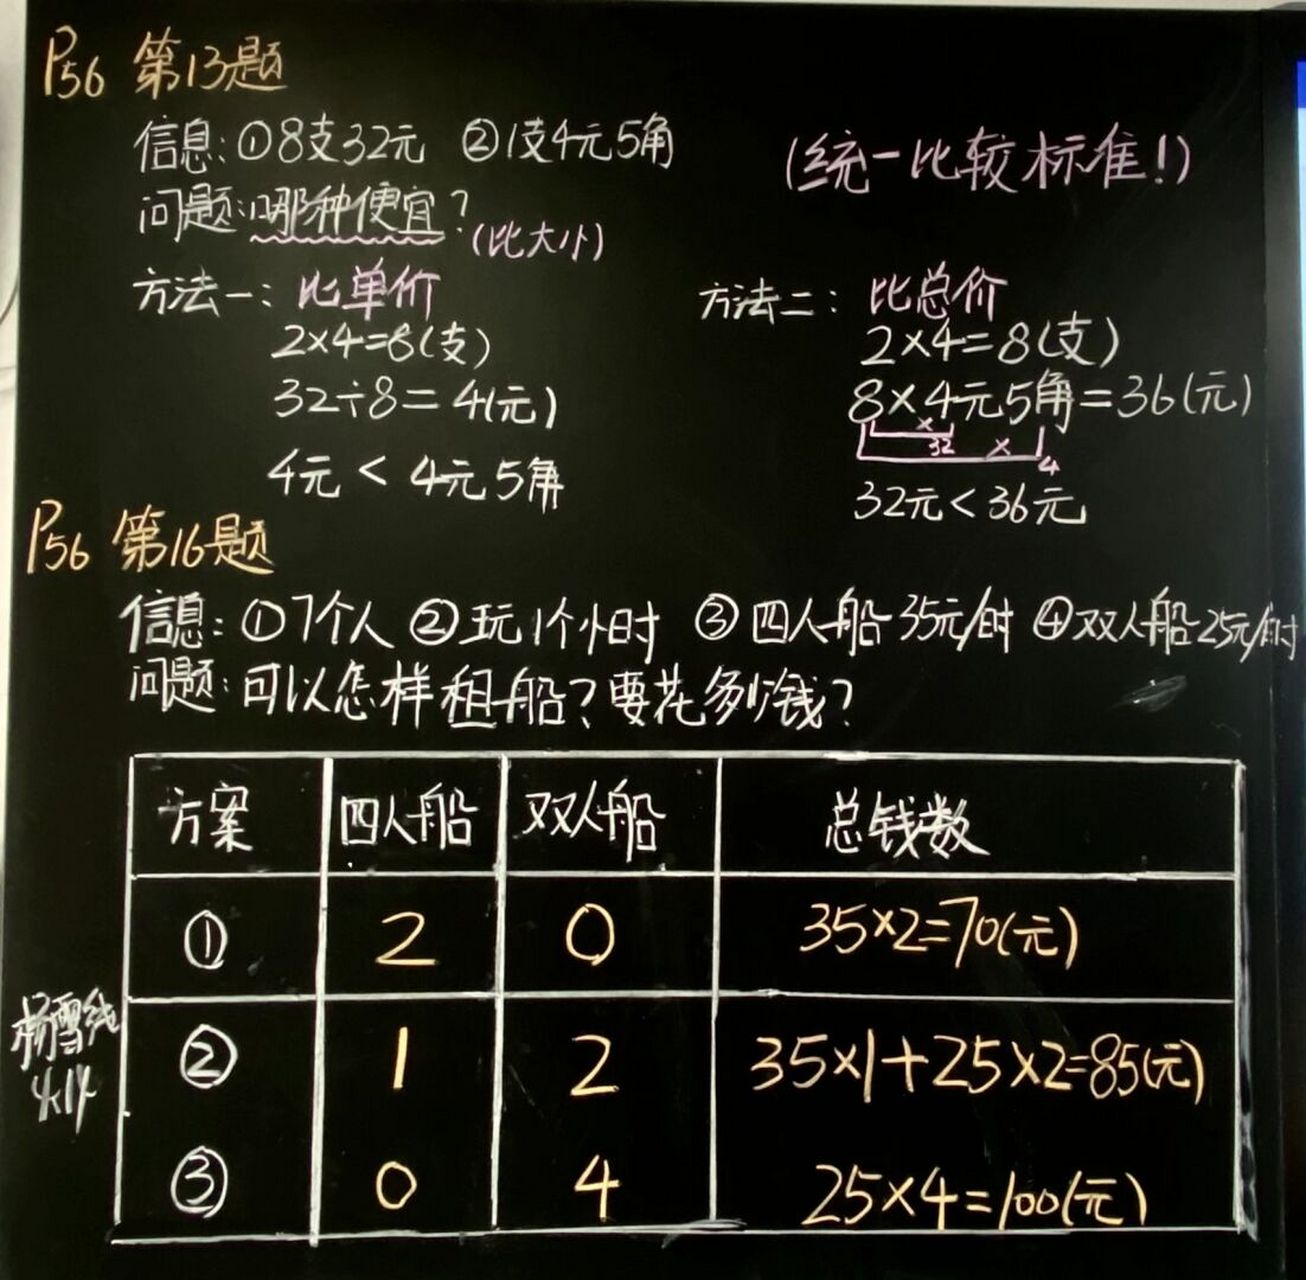 P56 第13题
信息:①8支32元 ②1支4元5角
(统一比较标准!)
问题:哪种便宜?(比大小)
方法一:比单价
2×4=8(支)
32÷8=4(元)
4元<4元5角
方法二:比总价
2×4=8(支)
8×4元5角=36(元)
× 32 × 4
32元<36元
P56 第16题
信息:①7个人 ②玩1个小时 ③四人船35元/时 ④双人船25元/时
问题:可以怎样租船?要花多少钱?
方案 四人船 双人船 总钱数
① 2 0 35×2=70(元)
② 1 2 35×1+25×2=85(元)
③ 0 4 25×4=100(元)